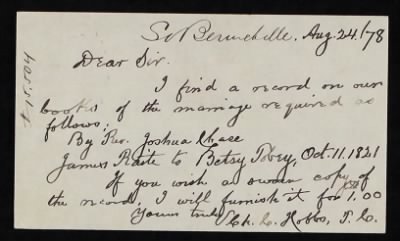 So Berwick Me. Aug. 24./78
Dear Sir.
I find a record on our
books of the marriage required as
follows:
By Rev. Joshua Chase
James Raite to Betsy Tobey, Oct. 11. 1821
If you wish an sworn copy of
the record, I will furnish it for 1.00
Yours truly Ch. C. Hobbs, T. C.
15,504